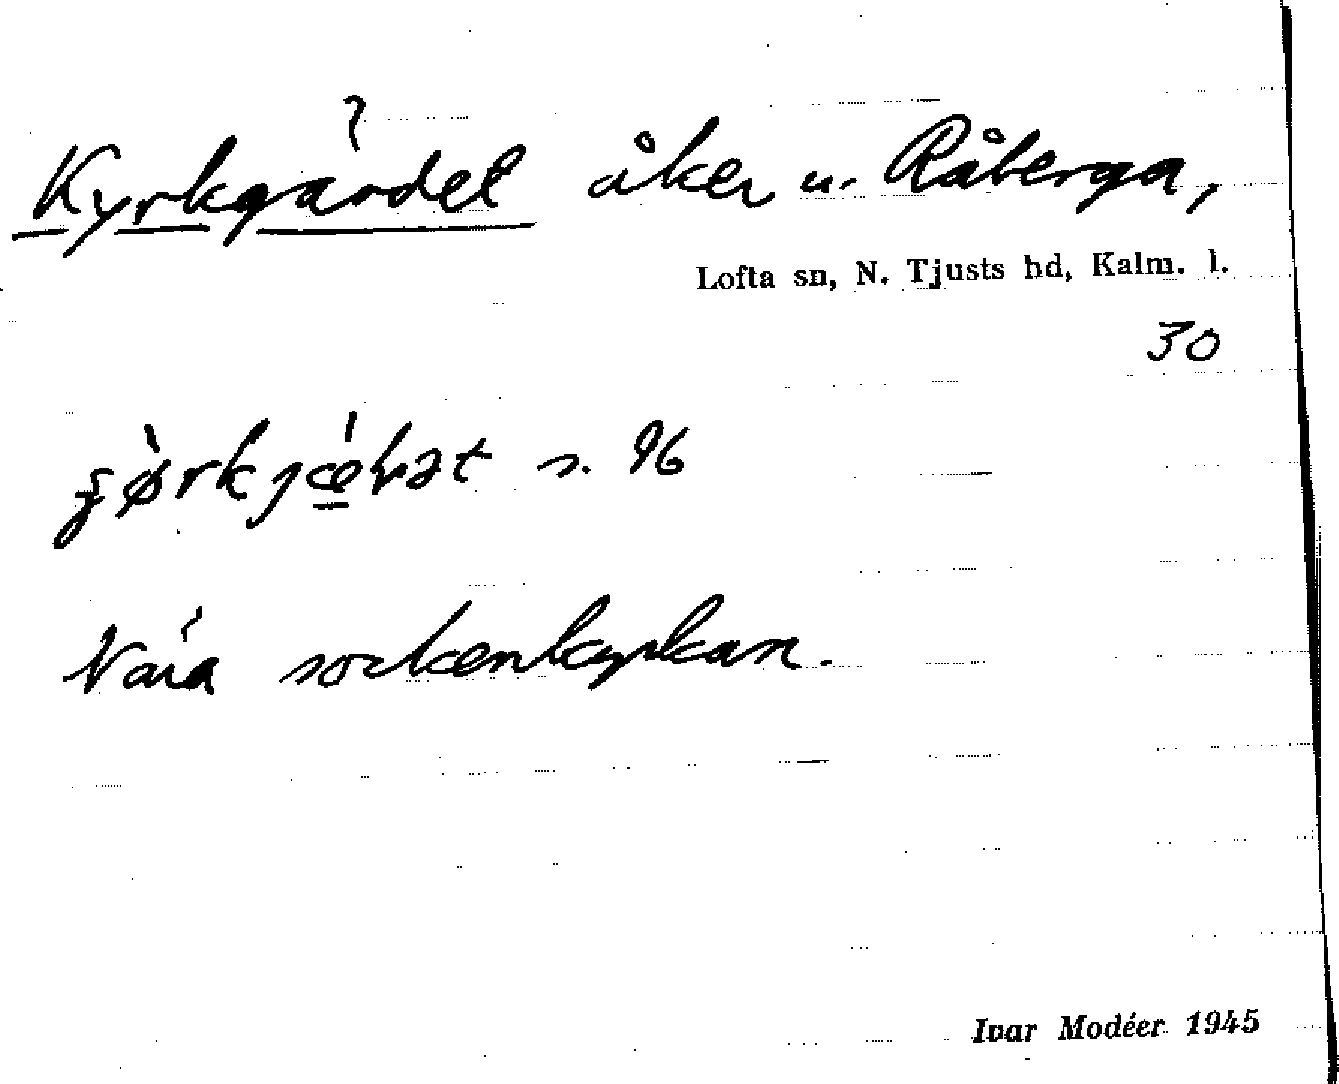 Kyrkgärdet åker u. Råberga,
Lofta sn, N. Tjusts hd, Kalm. l.
30
s. 96
Nära sockenkyrkan.
Ivar Modéer 1945